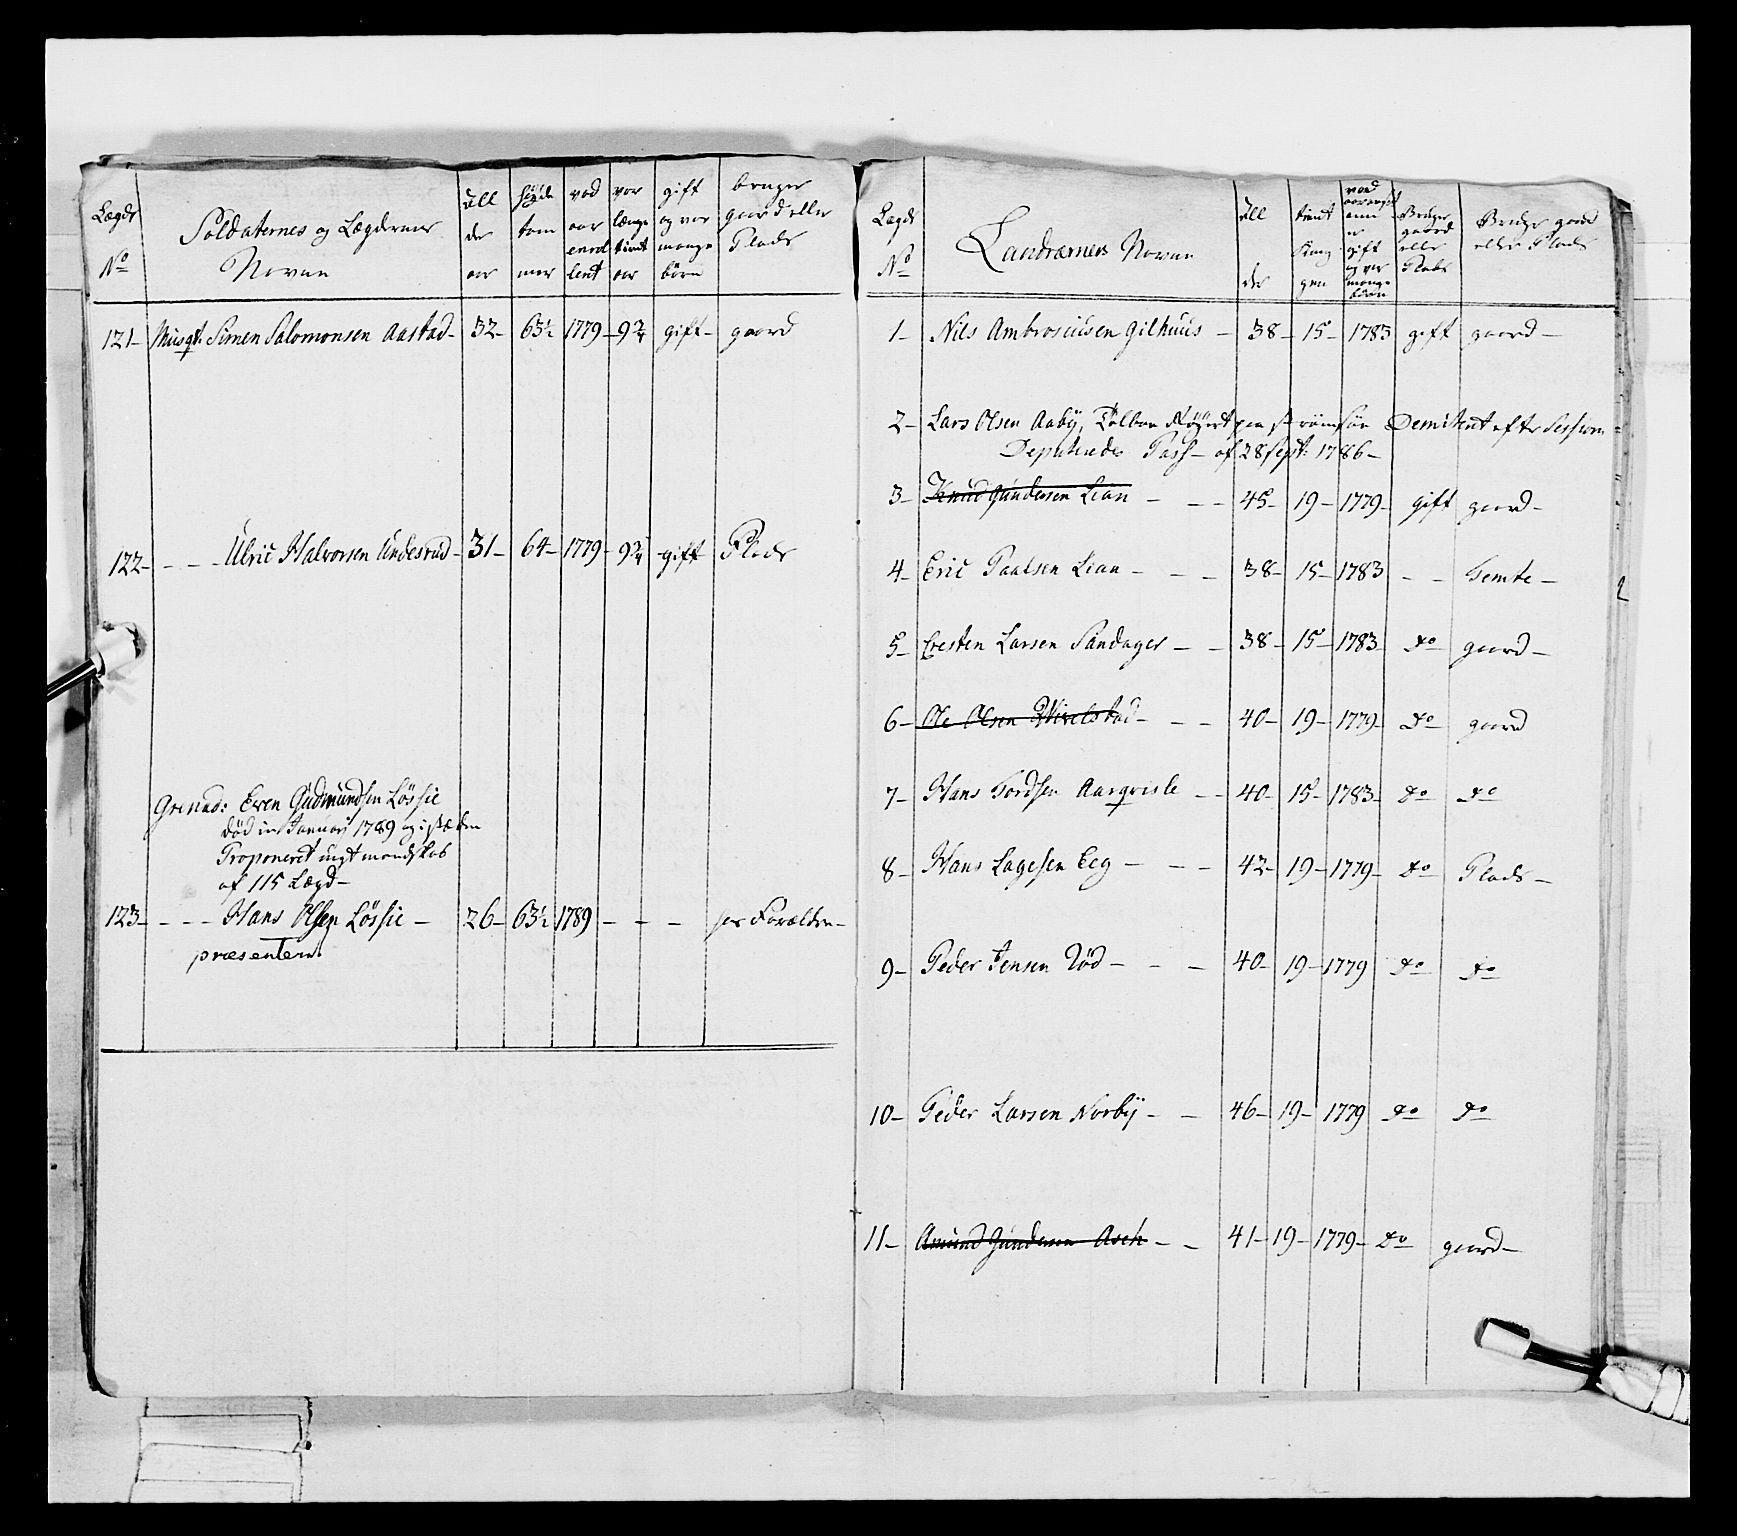 Lægds No
Soldaternes og Lægdernes Navne
All der aar
høyde tom mer
vad aar enrol lert
vor længe tient aar
gift og vor mange børn
bruger gaard eller Plads
121 – Musqt: Simen Salomonsen Aastad – 32 – 63½ 1779 – 9¾ gift – gaard
122 – – – Ulric Halvorsen Undesrud – 31 – 64 – 1779 – 9¾ gift Plads
Grenad: Even Gudmundsen Lössie
död in Januari 1789 og i stæden
Proponeret ungt mandskab
af 115 Lægd –
123 – – – Hans Olsen Lössie – 26 – 63½ 1789 – – – hos Forældre –
præsenteru
Lægds No
Landværnes Navne
All der
tient Kongen
vad aar
ann
er gift og vor mange börn
Bruger gaard eller Plads
Bruger gaard eller Plads
1 – Nils Ambrosiusen Gilhuus – 38 – 15 – 1783 gift gaard –
2 – Lars Olsen Aaby, Tolbon Röyert paa Strömsöe Demitteret efter Session
Deputeredes Pass – af 28 Sept: 1786 –
3 – Knud Gundersen Lian – – – 45 – 19 – 1779 – gift gaard –
4 – Eric Paulsen Lian – – – 38 – 15 – 1783 – – Temte –
5 – Cresten Larsen Sandager – – 38 – 15 – 1783 Do gaard –
6 – Ole Olsen Wivelstad – – – 40 – 19 – 1779 – Do gaard
7 – Hans Tordsen Aarqvisle – – 40 – 15 – 1783 – Do Do
8 – Hans Lagesen Eeg – – – 42 – 19 – 1779 – Do Plads –
9 – Peder Jensen Röd – – – 40 – 19 – 1779 Do Do
10 – Peder Larsen Norby – – 46 – 19 – 1779 Do Do
11 – Amund Gundersen Aseh – – 41 – 19 – 1779 – Do gaard –